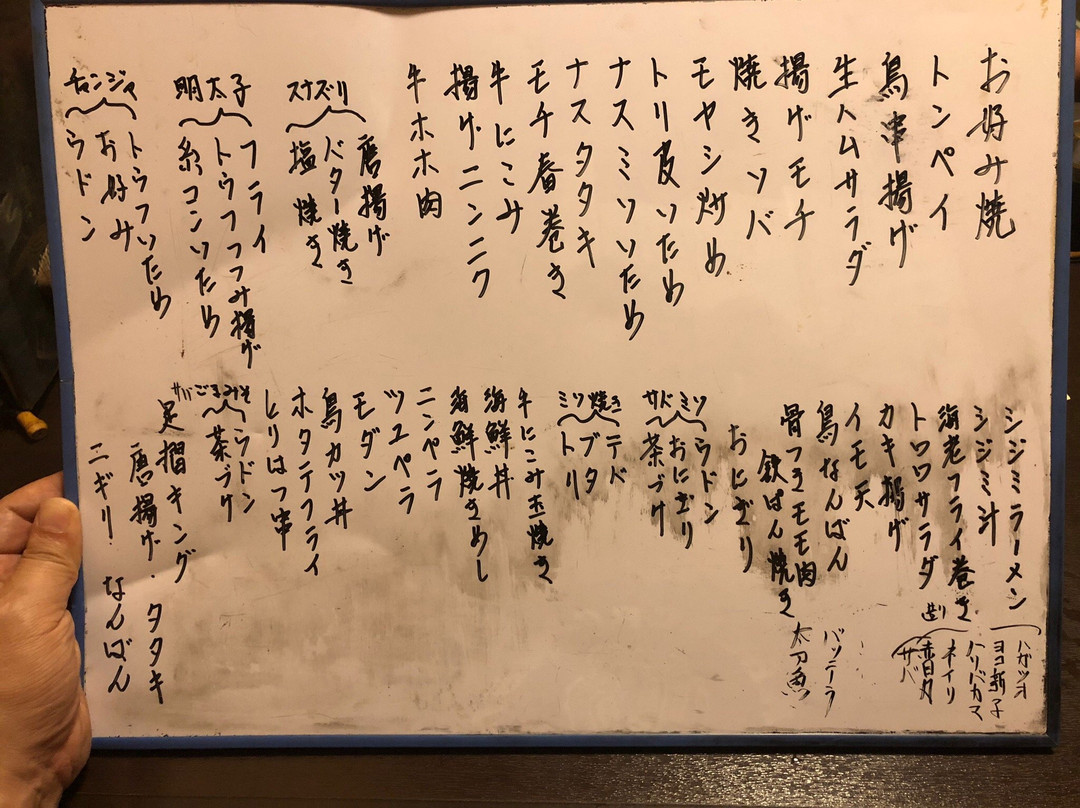 お好み焼
トンペイ
鳥串揚げ
生ハムサラダ
揚げモチ
焼きソバ
モヤシ炒め
トリ皮いため
ナスミソいため
ナスタタキ
モチ春巻き
牛にこみ
揚げニンニク
牛ホホ肉
スナズリ
唐揚げ
バター焼き
塩焼き
明太子
フライ
トウフつつみ揚げ
糸コンいため
チャンジャ
トウフいため
お好み
ウドン
シジミラーメン
シジミ汁
海老フライ巻き
トロロサラダ
カキ揚げ
イモ天
鳥なんばん
骨つきモモ肉
鉄ぱん焼き
おにぎり
サバミソ
ウドン
おにぎり
茶づけ
ミソ焼き
テバ
ブタ
トリ
牛にこみ玉焼き
海鮮丼
海鮮焼きめし
ニンペラ
ツユペラ
モダン
鳥カツ丼
ホタテフライ
とりはつ串
サバごまみそ
ウドン
茶づけ
足摺キング
唐揚げ・タタキ
ニギリ・なんばん
造り
ハガツオ
ヨコ新子
ハリバカマ
ネイリ
サバ
バッテラ
太刀魚